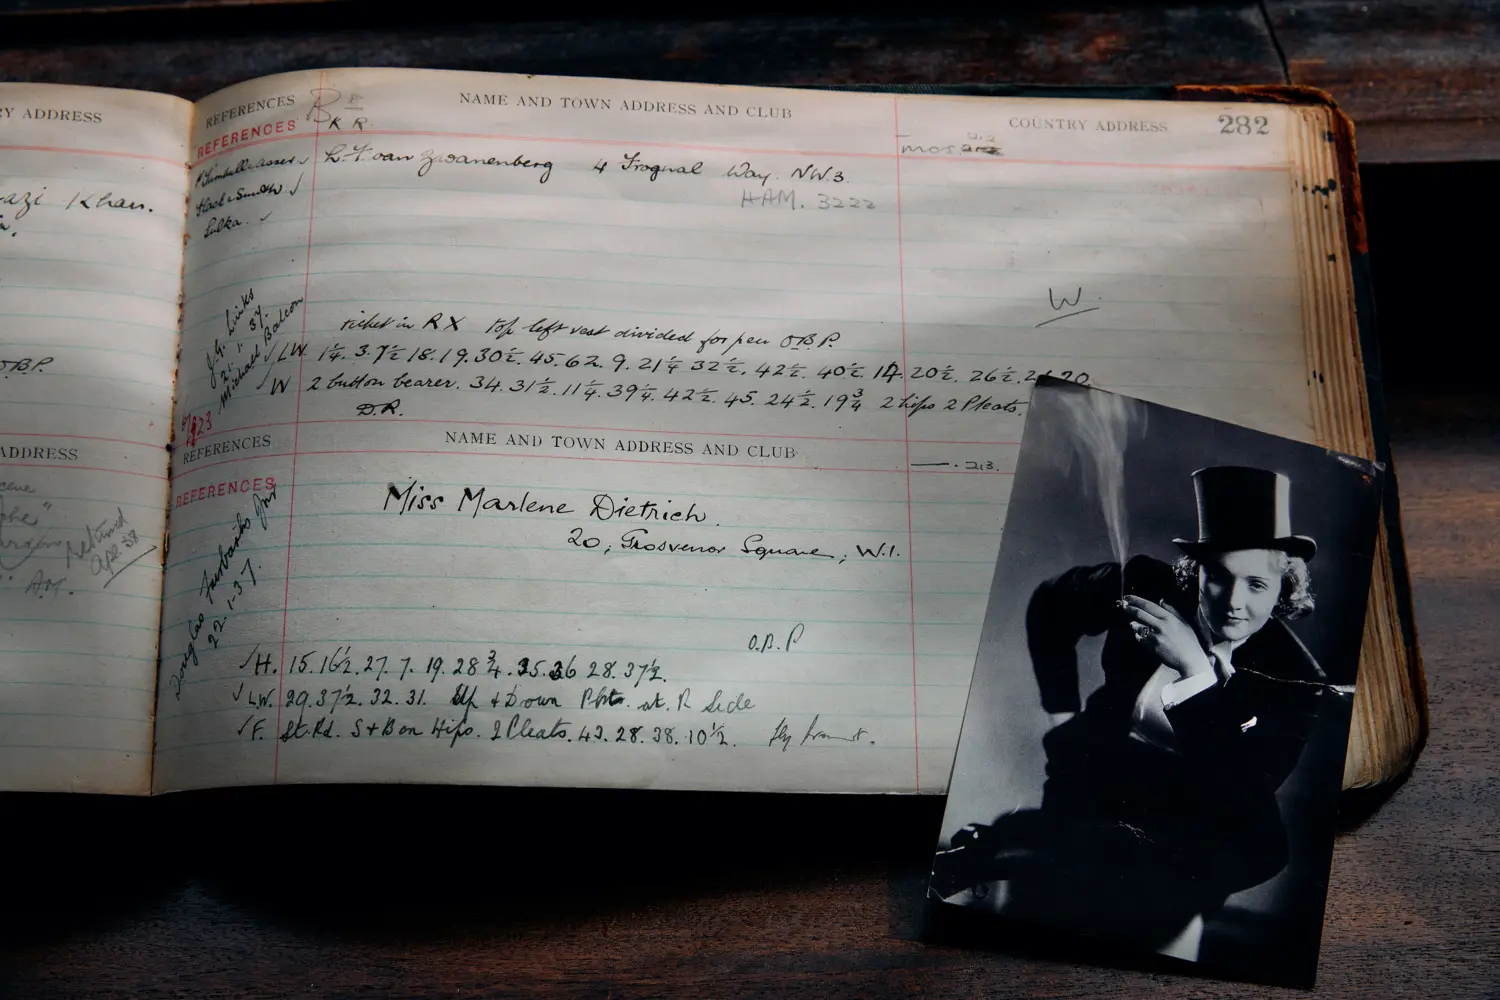 RY ADDRESS
azi Khan.
O.B.P.
ADDRESS
Returned
Apl. 38
A.M.
REFERENCES
NAME AND TOWN ADDRESS AND CLUB
COUNTRY ADDRESS
282
REFERENCES
R R.
mos.
L. F. van Zwanenberg 4 Frognal Way. NW.3.
HAM. 3222
Sulka.
W.
J.G. Links
21. 1. 37.
Michael Balcon
ticket in RX top left vest divided for pen O.B.P.
LW 1¼. 3. 7½ 18. 19. 30½. 45. 62. 9. 21¼ 32½. 42½. 40½ 14. 20½. 26½.
W 2 button bearer. 34. 31½. 11¼. 39¼. 42½. 45. 24½. 19¾ 2 hips 2 Pleats.
D.R.
REFERENCES
NAME AND TOWN ADDRESS AND CLUB
REFERENCES
213.
Miss Marlene Dietrich.
20, Grosvenor Square, W.1.
Douglas Fairbanks Jnr
22. 1. 37.
O.B.P
H. 15. 16½. 27. 7. 19. 28¾. 35. 36 28. 37½.
LW. 29. 37½. 32. 31. Up + Down Pkt. at. R Side
F. St. Rd. S + B on Hips. 2 Pleats. 43. 28. 38. 10½. fly front.